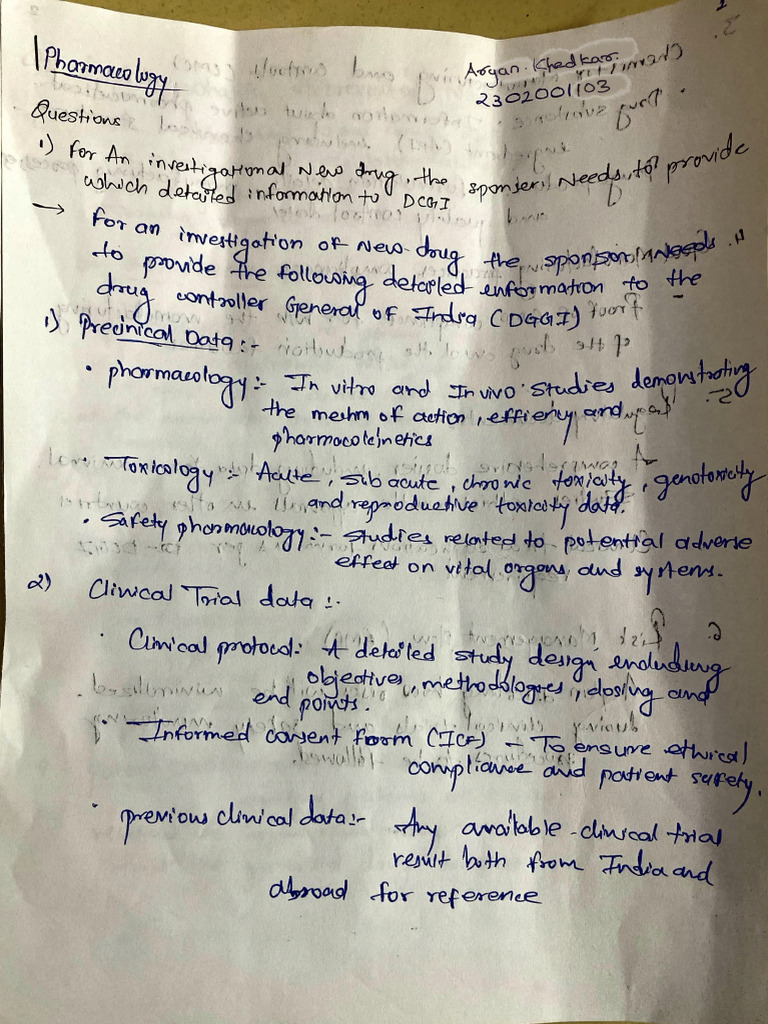 Pharmacology
Aryan. Khedkar.
2302001103
Questions
1) For An investigational New drug, the sponser Needs to provide
which detailed information to DCGI
→ For an investigation of New drug the sponsor Needs
to provide the following detailed information to the
drug controller General of India (DGGI)
1) Preclinical Data :-
• pharmacology :- In vitro and Invivo studies demonstrating
the meshm of action, effieny and
pharmacokinetics
• Toxicology :- Acute, sub acute, chronic toxicity, genotoxicity
and reproductive toxicity data.
• Safety pharmacology :- studies related to potential adverse
effect on vital organs and systems.
2) Clinical Trial data :-
• Clinical protocol: A detailed study design encluding
objectives, methodologies, dosing and
end points.
• Informed consent form (ICF) - To ensure ethical
compliance and patient safety.
• previous clinical data :- Any available clinical trial
result both from India and
abroad for reference